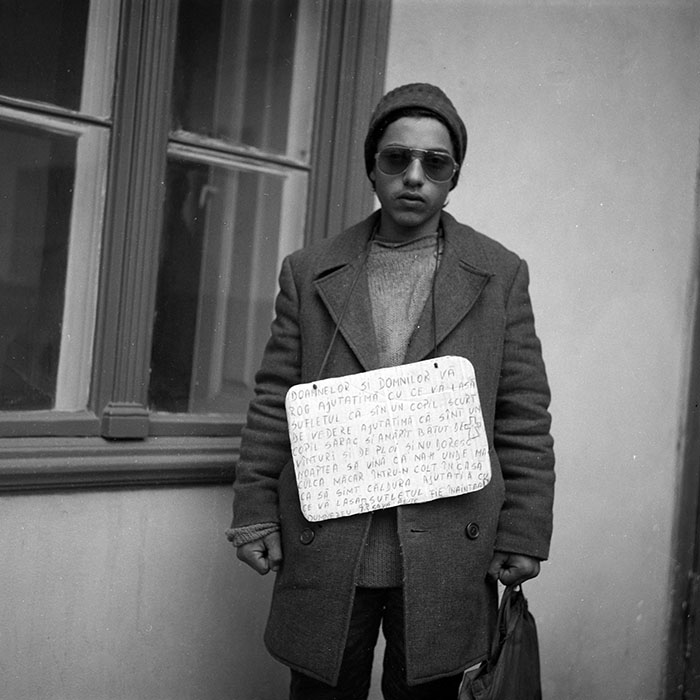 DOAMNELOR SI DOMNILOR VĂ
ROG AJUTATIMĂ CU CE VĂ LASĂ
SUFLETUL CĂ SÎN UN COPIL SCURT
DE VEDERE AJUTATIMĂ CĂ SÎNT UN
COPIL SĂRAC SI BĂTUT DE
VÎNTURI SI DE PLOI SI NU DORESC
NOAPTEA SĂ VINĂ CĂ NAM UNDE MĂ
CULCA MACAR ÎNTRU-N COLT ÎN CASĂ
CA SĂ SIMT CĂLDURA AJUTATI A CU
CE VĂ LASĂ SUFLETUL FIE ÎNAINTEA
DUMNEZEU